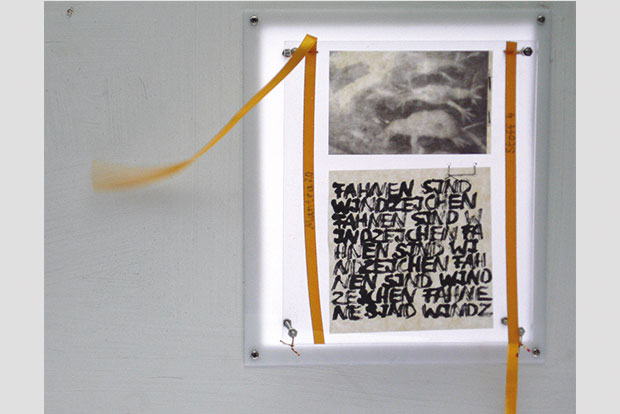 FAHNEN SIND
WINDZEICHEN
FAHNEN SIND W
INDZEICHEN FA
HNEN SIND WI
NDZEICHEN FAH
NEN SIND WIND
ZEICHEN FAHNE
NE SIND WINDZ